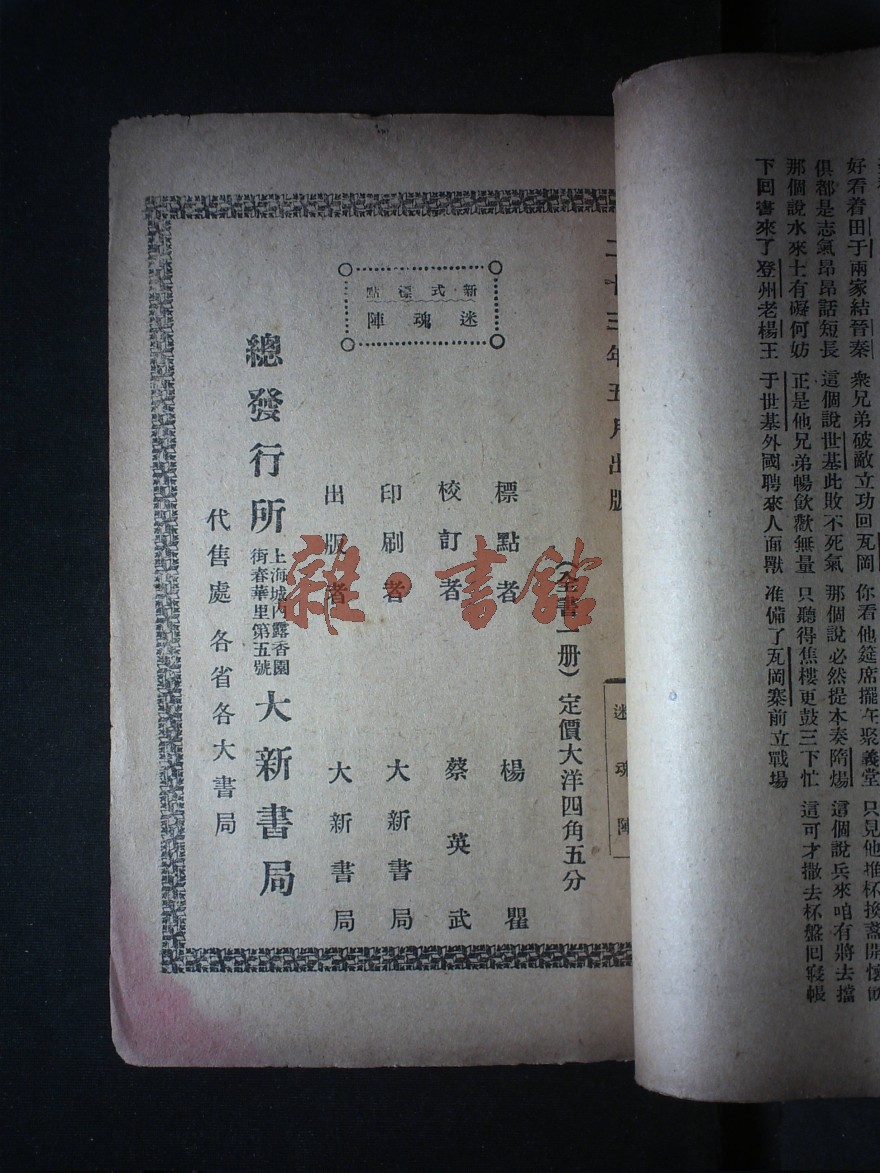 好看着田于兩家結晉秦　衆兄弟破敵立功回瓦岡　你看他筵席擺在聚義堂　只見他堆杯換盞開懷
俱都是志氣昂昂話短長　這個說世基此敗不死氣　那個說必然提本奏隋煬　這個說兵來咱有將去擋
那個說水來士有礙何妨　正是他兄弟暢飲歡無量　只聽得焦樓更鼓三下忙　這可才撤去杯盤回寢帳
下回書來了登州老楊王　于世基外國聘來人面獸　准備了瓦岡寨前立戰場
迷魂陣
二十三年五月出版
(全書一册)定價大洋四角五分
新式標點
迷魂陣
標點者　楊瞿
校訂者　蔡英武
印刷者　大新書局
出版者　大新書局
總發行所　上海城內露香園
街春華里第五號　大新書局
代售處　各省各大書局
雜·書館